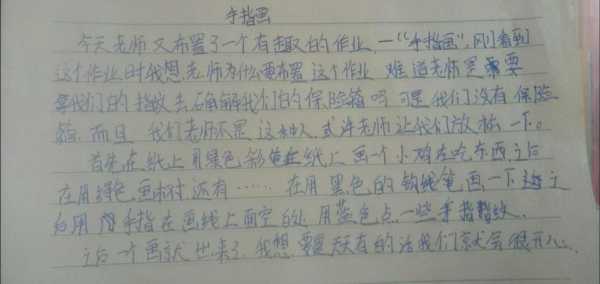 手指画
今天老师又布置了一个有趣的作业,一“手指画”,刚看到
这个作业时我想,老师为什么要布置这个作业,难道老师是需要
拿我们的指纹去破解我们的保险箱吗?可是,我们没有保险
箱,而且,我们老师不是这种人,或许老师让我们放松一下。
首先在纸上用绿色彩笔在纸上画一个小鸡在吃东西,之后
在用绿色画树,还有……在用黑色的钩线笔画一下边之
后用手指在画线上面空的处用蓝色点一些手指指纹,
之后一个画就出来了,我想,要是天天有的话我们就会很开心。